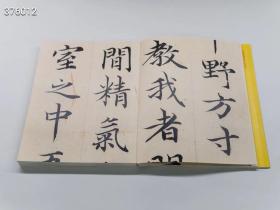 野方寸
教我者
間精氣
室之中
376012